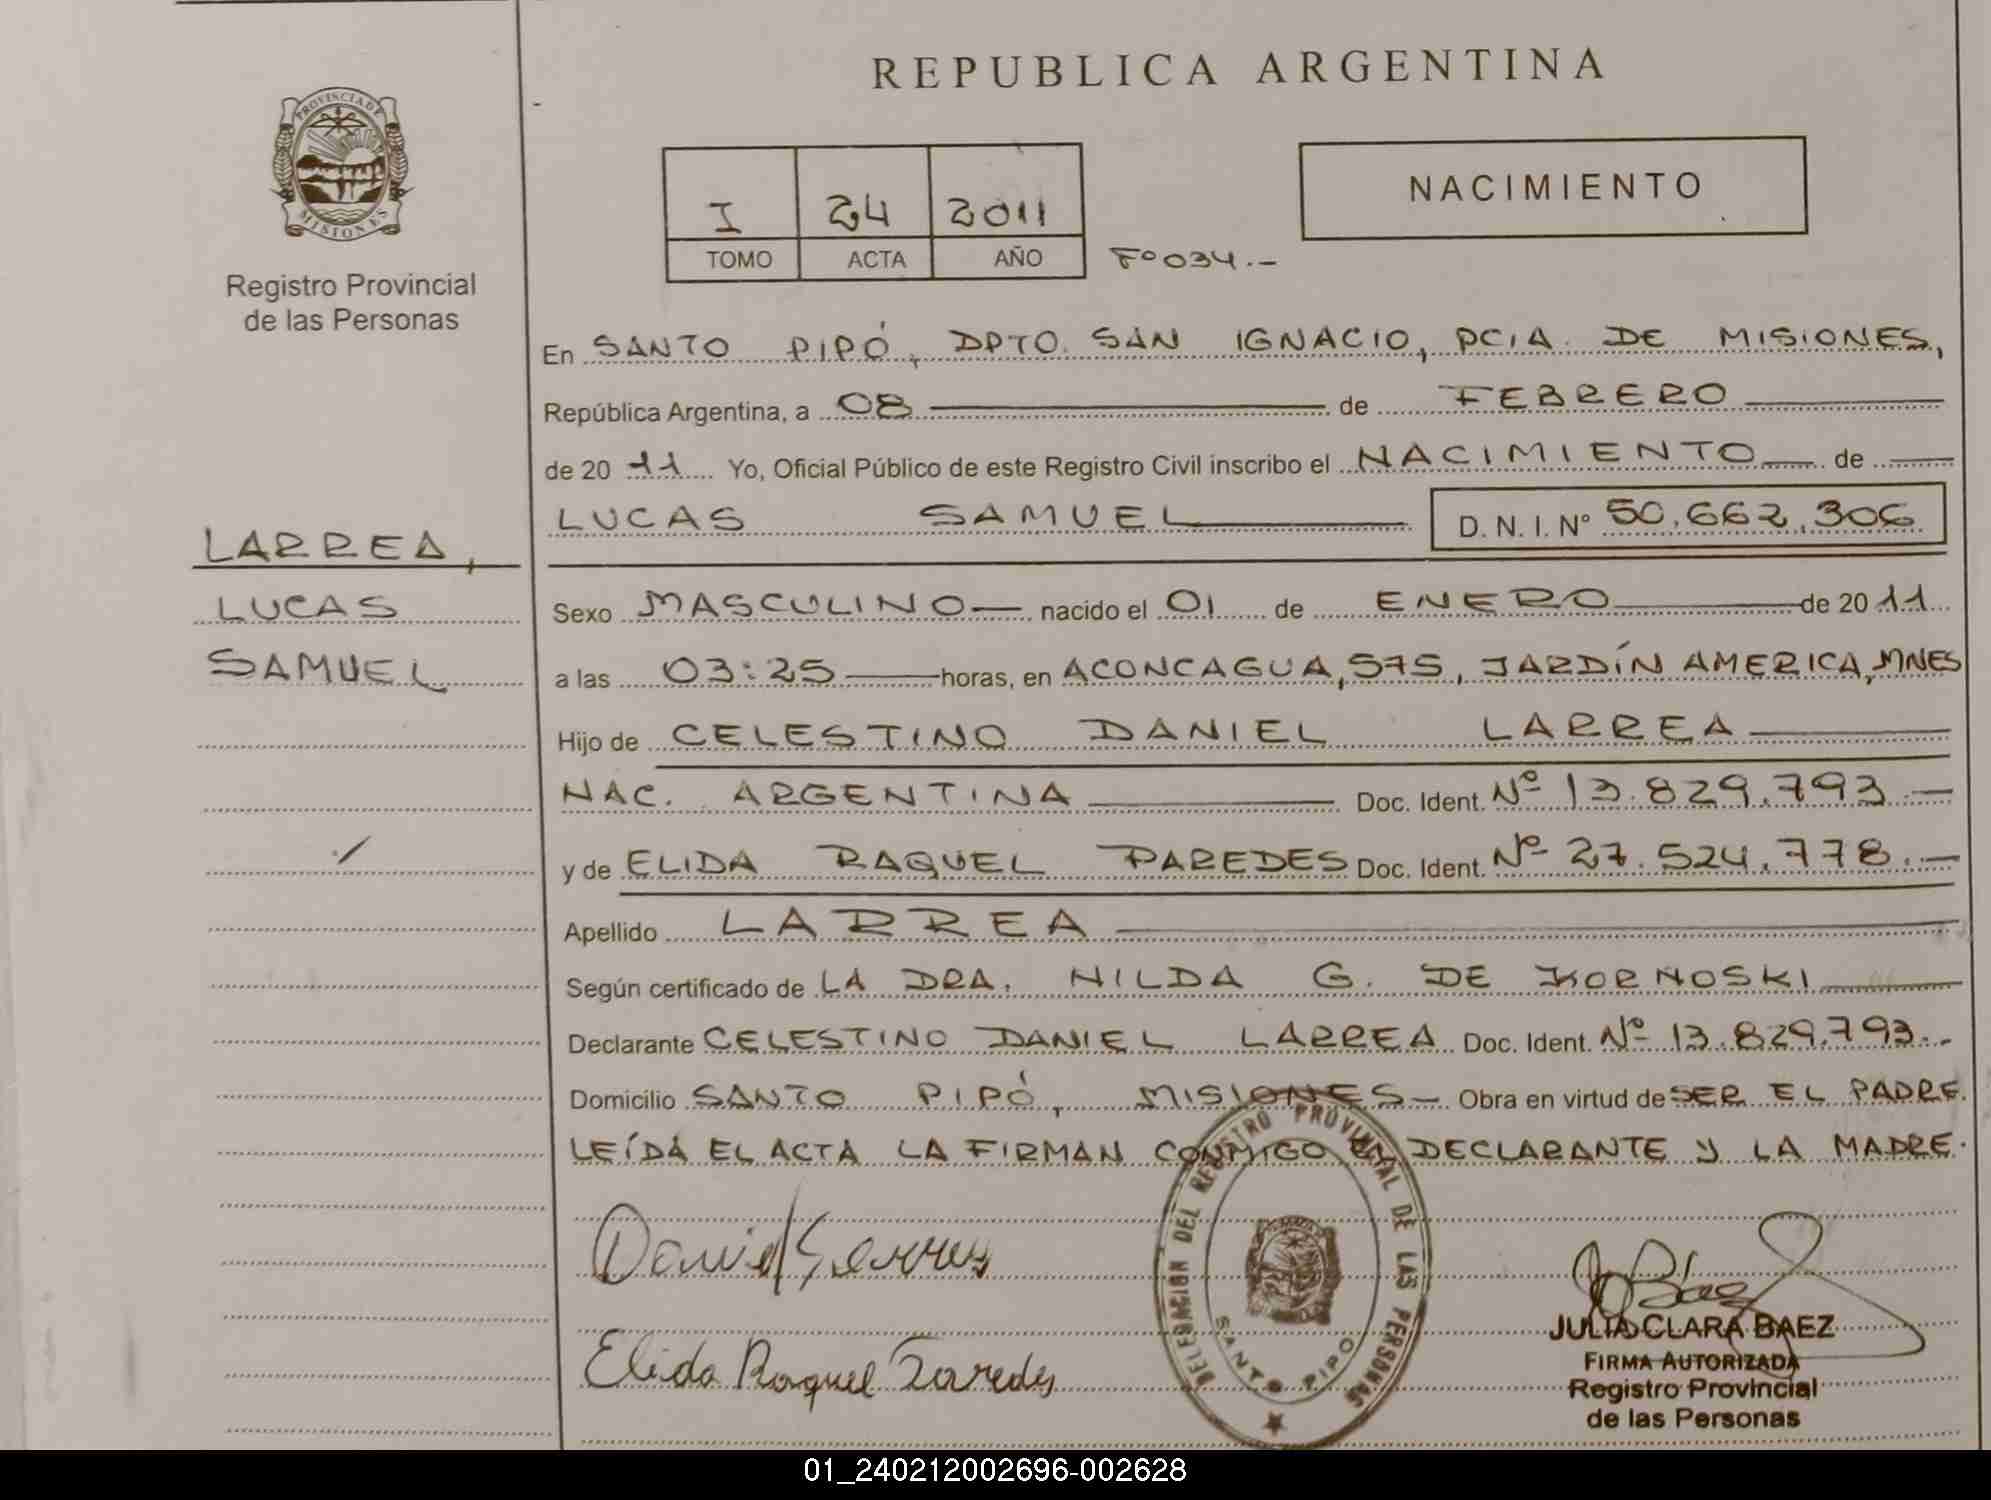 REPUBLICA ARGENTINA
PROVINCIA DE MISIONES
Registro Provincial
de las Personas
I 24 2011
TOMO ACTA AÑO
Fº 034.-
NACIMIENTO
LARREA,
LUCAS
SAMUEL
En SANTO PIPÓ, DPTO. SAN IGNACIO, PCIA. DE MISIONES,
República Argentina, a 08 de FEBRERO
de 2011 Yo, Oficial Público de este Registro Civil inscribo el NACIMIENTO de
LUCAS SAMUEL D. N. I. Nº 50.662.306
Sexo MASCULINO nacido el 01 de ENERO de 2011
a las 03:25 horas, en ACONCAGUA, 575, JARDÍN AMERICA, MNES
Hijo de CELESTINO DANIEL LARREA
NAC. ARGENTINA Doc. Ident. Nº 13.829.793.-
y de ELIDA RAQUEL PAREDES Doc. Ident. Nº 27.524.778.-
Apellido LARREA
Según certificado de LA DRA. NILDA G. DE KORNOSKI
Declarante CELESTINO DANIEL LARREA Doc. Ident. Nº 13.829.793.-
Domicilio SANTO PIPÓ, MISIONES- Obra en virtud de SER EL PADRE.
LEÍDA EL ACTA LA FIRMAN CONMIGO EL DECLARANTE Y LA MADRE.
Daniel Larrea
Elida Raquel Paredes
DELEGACION DEL REGISTRO PROVINCIAL DE LAS PERSONAS
SANTO PIPO
JBáez
JULIA CLARA BAEZ
FIRMA AUTORIZADA
Registro Provincial
de las Personas
01_240212002696-002628